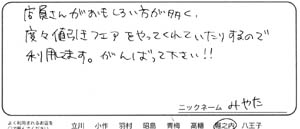 店員さんがおもしろい方が多く、
度々値引きフェアをやってくれていたりするので
利用してます。がんばって下さい!!
ニックネーム みやた
よく利用されるお店を
立川 小作 羽村 昭島 青梅 高幡 堀之内 八王子